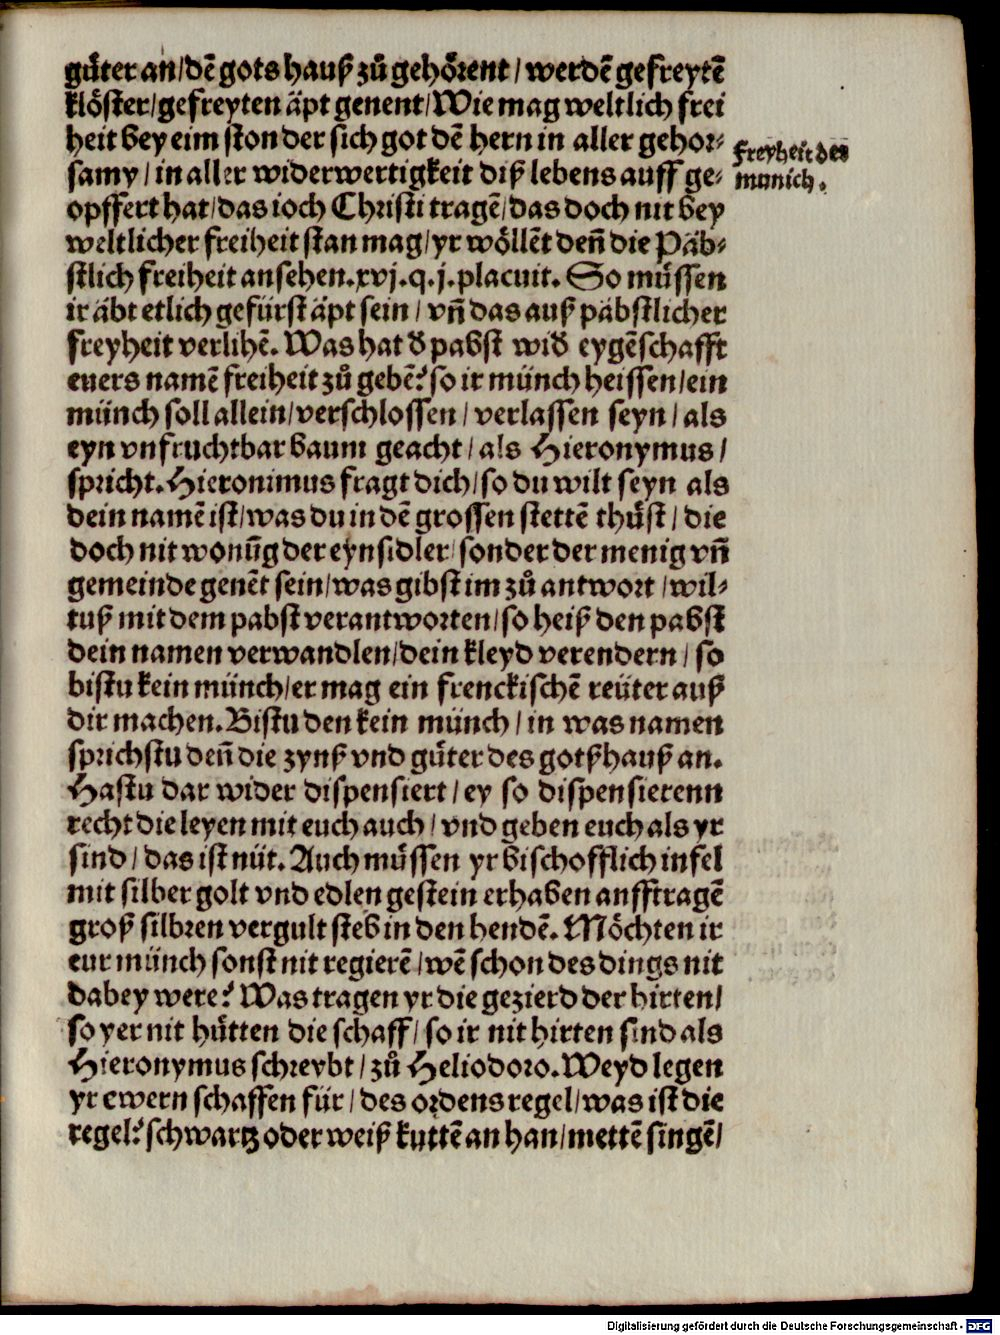 guͤter an/dē gots hauß zuͦ gehoͤrent/werdē gefreytē
kloͤster/gefreyten aͤpt genent/Wie mag weltlich frei
heit bey eim ston der sich got dē hern in aller gehor⸗
samy/in aller widerwertigkeit diß lebens auff ge⸗
opffert hat/das ioch Christi tragē/das doch nit bey
weltlicher freiheit stan mag/yr woͤllēt den̄ die Paͤb⸗
stlich freiheit ansehen.xvj.q.j.placuit. So muͤssen
ir aͤbt etlich gefuͤrst aͤpt sein/vn̄ das auß paͤbstlicher
freyheit verlihē. Was hat d̕ pabst wid̕ eygēschafft
euers namē freiheit zuͦ gebē? so ir muͤnch heissen/ein
muͤnch soll allein/verschlossen/verlassen seyn/als
eyn vnfruchtbar baum geacht/als Hieronymus/
spricht. Hieronimus fragt dich/so du wilt seyn als
dein namē ist/was du in dē grossen stettē thuͤst/die
doch nit wonūg der eynsidler/sonder der menig vn̄
gemeinde genēt sein/was gibst im zuͦ antwort/wil⸗
tuß mit dem pabst verantworten/so heiß den pabst
dein namen verwandlen/dein kleyd verendern/so
bistu kein muͤnch/er mag ein frenckischē reuͤter auß
dir machen. Bistu den kein muͤnch/in was namen
sprichstu den̄ die zynß vnd guͤter des gotßhauß an.
Hastu dar wider dispensiert/ey so dispensierenn
recht die leyen mit euch auch/vnd geben euch als yr
sind/das ist nuͤt. Auch muͤssen yr bischofflich infel
mit silber golt vnd edlen gestein erhaben ansftragē
groß silbren vergult steb in den hendē. Moͤchten ir
eur muͤnch sonst nit regierē/wē schon des dings nit
dabey were? Was tragen yr die gezierd der hirten/
so yer nit huͤtten die schaff/so ir nit hirten sind als
Hieronymus schreybt/zuͦ Heliodoro. Weyd legen
yr ewern schaffen fuͤr/des ordens regel/was ist die
regel? schwartz oder weiß kuttē an han/mettē singē/
freyheit des
munich.
Digitalisierung gefördert durch die Deutsche Forschungsgemeinschaft - DFG